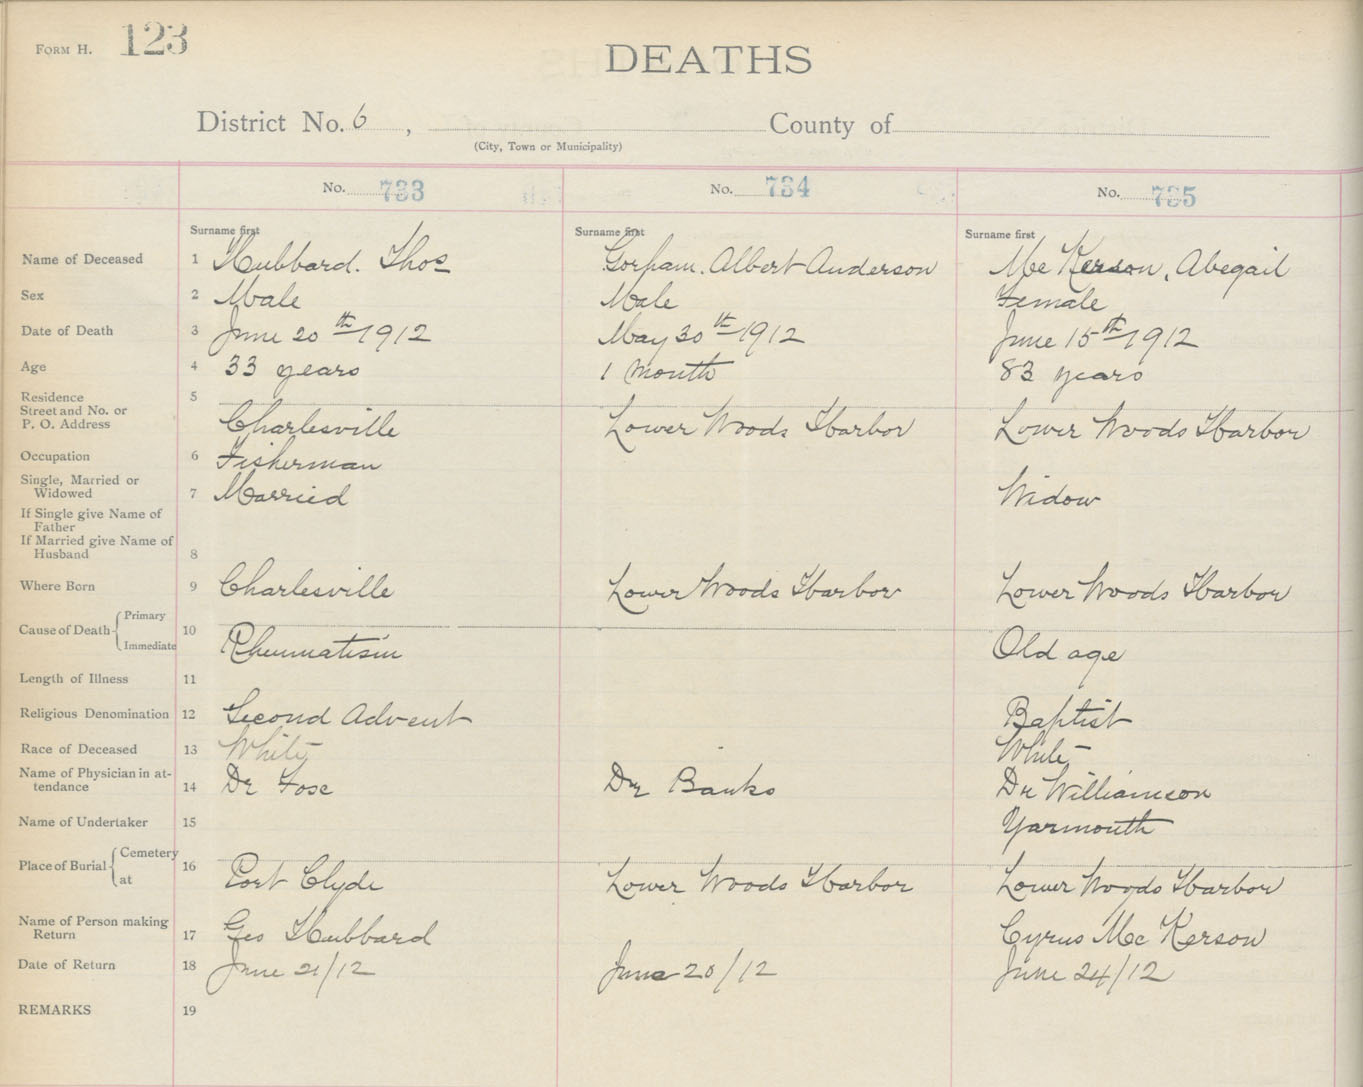 FORM H. 123
DEATHS
District No. 6 , County of
(City, Town or Municipality)
No. 733 No. 734 No. 735
Surname first Surname first Surname first
Name of Deceased 1 Hubbard. Thos Gorham. Albert Anderson Mc Kerson, Abegail
Sex 2 Male Male Female
Date of Death 3 June 20th 1912 May 30th 1912 June 15th 1912
Age 4 33 years 1 month 83 years
Residence 5
Street and No. or
P. O. Address Charlesville Lower Woods Harbor Lower Woods Harbor
Occupation 6 Fisherman
Single, Married or
Widowed 7 Married Widow
If Single give Name of
Father
If Married give Name of
Husband 8
Where Born 9 Charlesville Lower Woods Harbor Lower Woods Harbor
Primary
Cause of Death 10
Immediate Rheumatism Old age
Length of Illness 11
Religious Denomination 12 Second Advent Baptist
Race of Deceased 13 White White
Name of Physician in at-
tendance 14 Dr Fose Dr Banks Dr Williamson
Name of Undertaker 15 Yarmouth
Cemetery
Place of Burial 16
at Port Clyde Lower Woods Harbor Lower Woods Harbor
Name of Person making
Return 17 Geo Hubbard Cyrus Mc Kerson
Date of Return 18 June 21/12 June 20/12 June 24/12
REMARKS 19